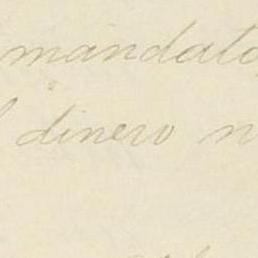 mandato
dinero